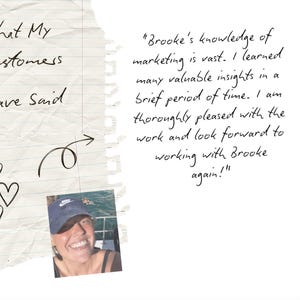 My
Have Said
"Brooke's knowledge of
marketing is vast. I learned
many valuable insights in a
brief period of time. I am
thoroughly pleased with the
work and look forward to
working with Brooke
again!"